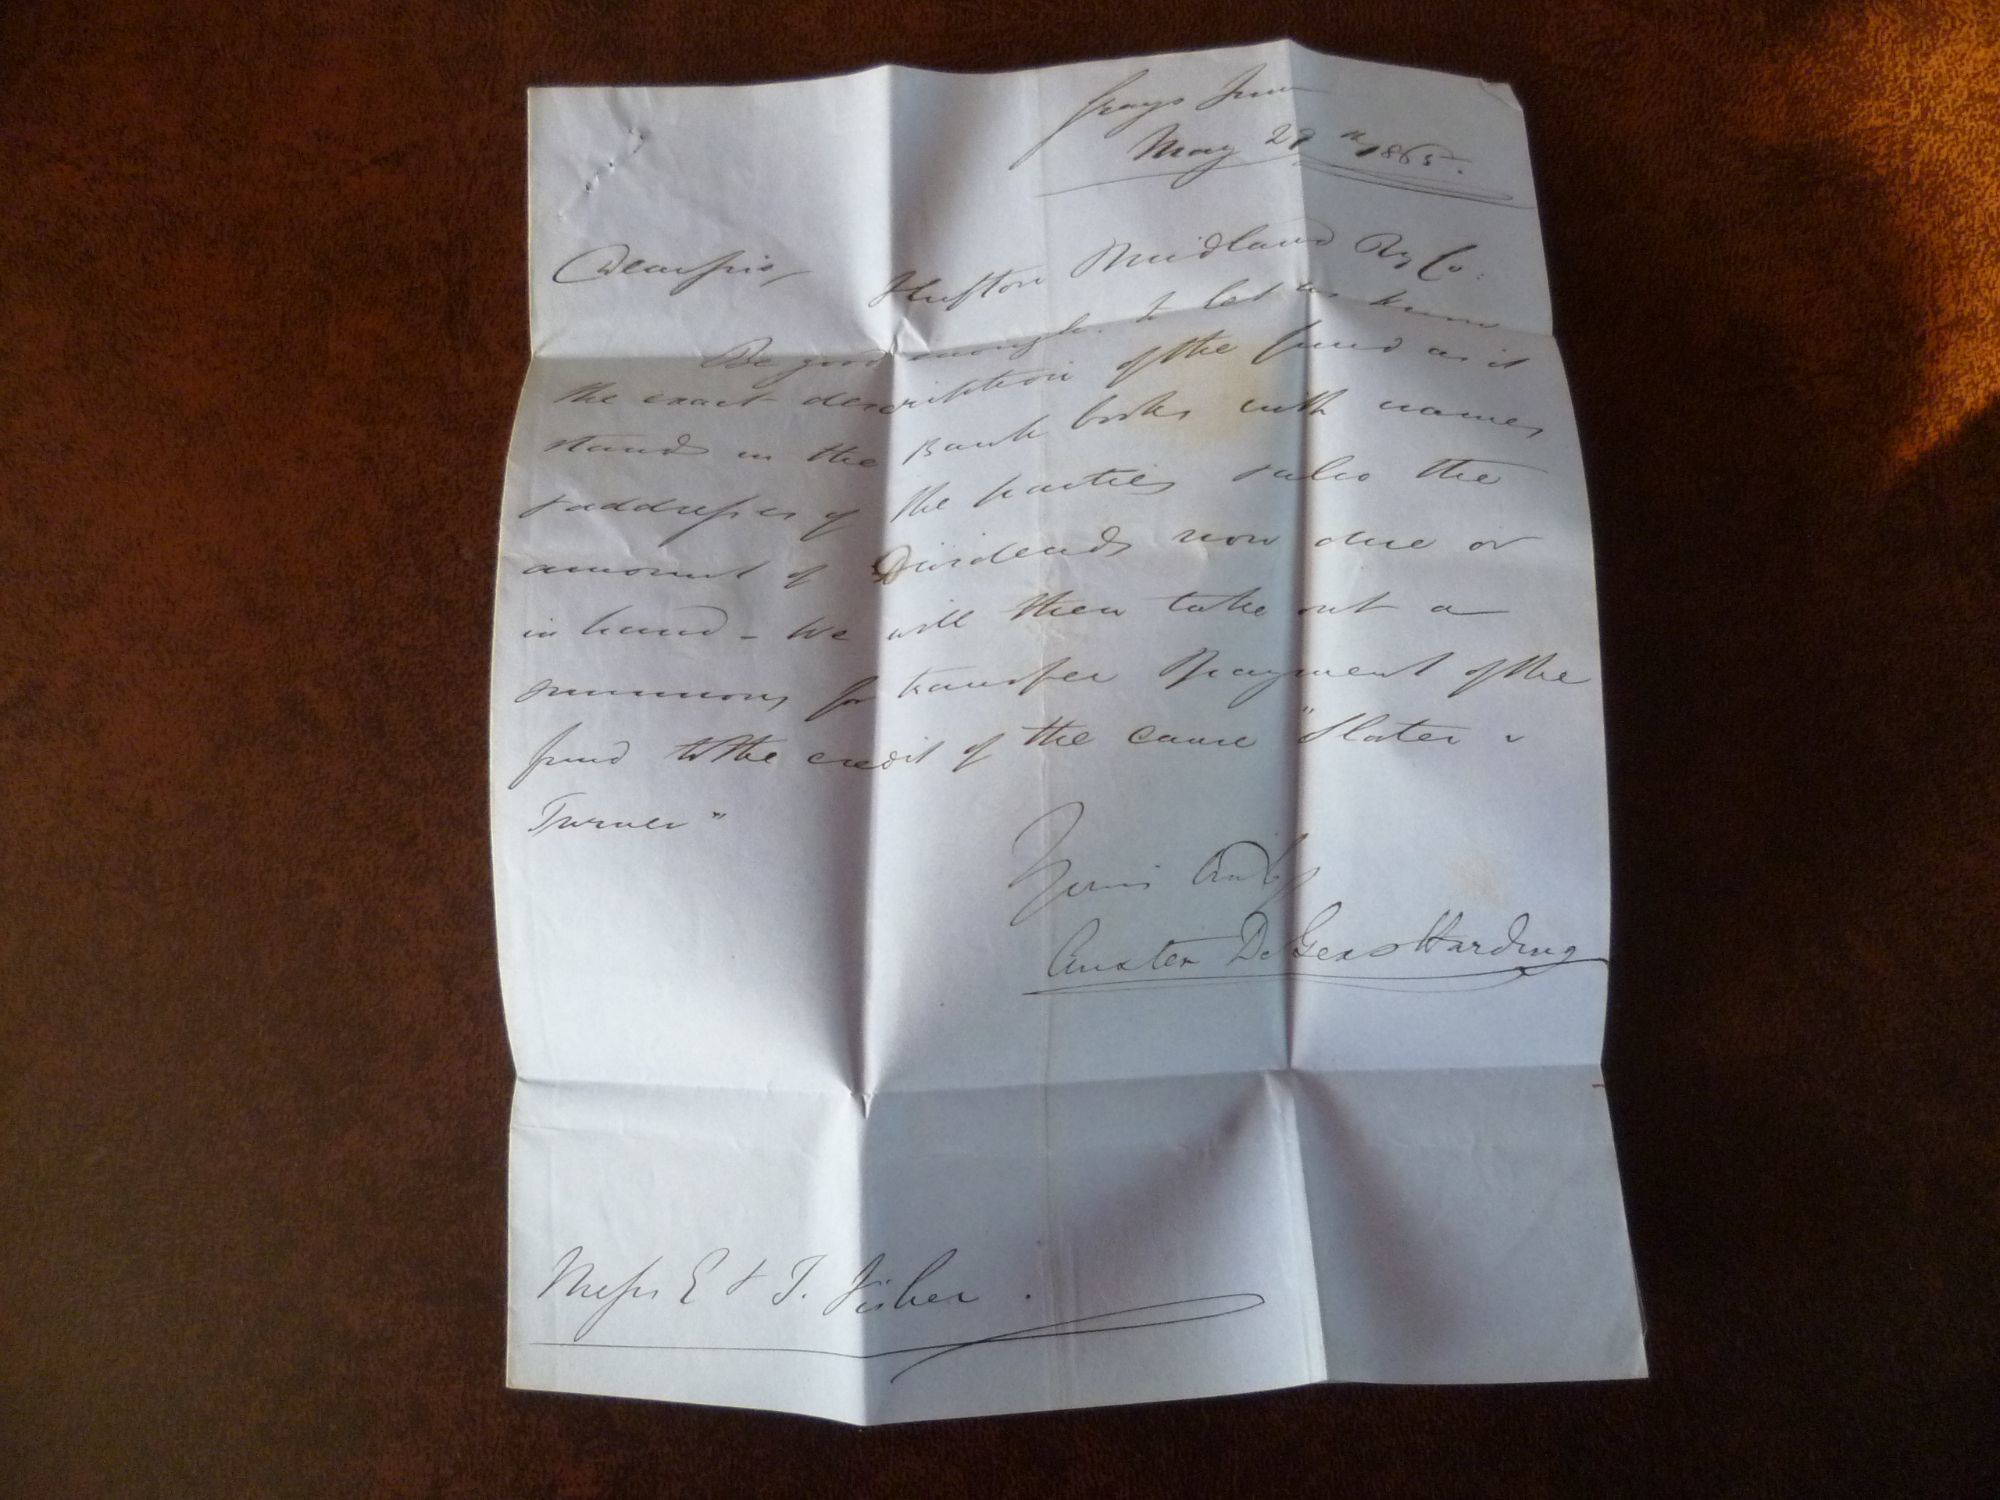 Grays Inn
May 29th 1865.
Dear Sirs,
Midland Ry Co:
Be good enough to let us know
the exact description of the fund as it
stands in the Bank books with names
& addresses of the parties & also the
amount of Dividends now due or
in hand - We will then take out a
summons for transfer & payment of the
fund to the credit of the cause "Slater v
Turner"
Yours truly
Austen De Gex & Harding
Messrs E & T. Fisher.